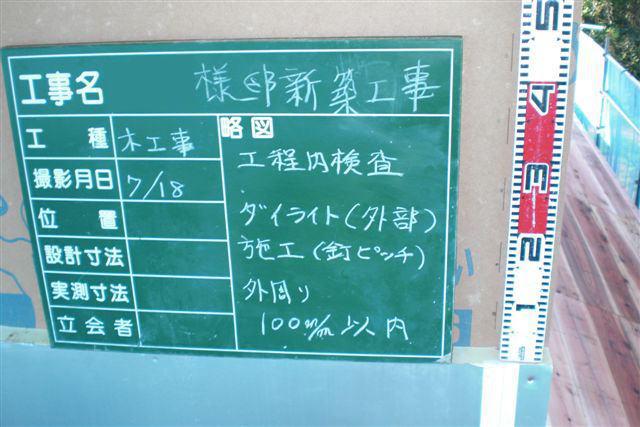 工事名 様邸新築工事
工種 木工事
撮影月日 7/18
位置
設計寸法
実測寸法
立会者
略図
工程内検査
ダイライト(外部)
施工(釘ピンチ)
外周り
100m/m以内
5
4
3
2
1